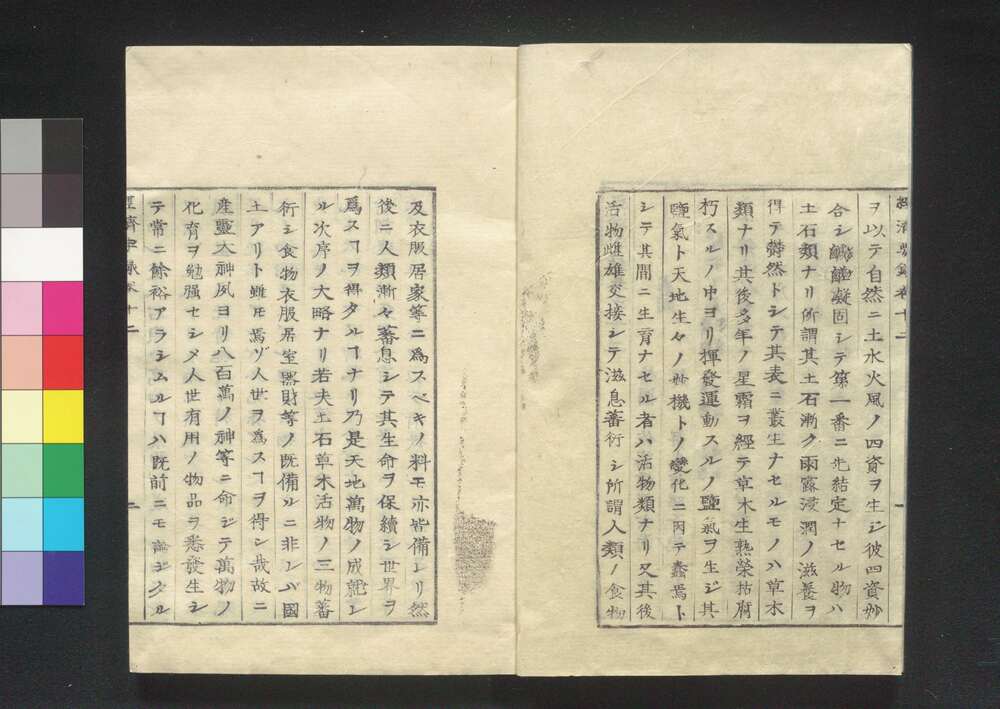 經濟要錄卷十二 一
ヲ以テ自然ニ土水火風ノ四資ヲ生ジ彼四資妙
合シ鹹鹽凝固シテ第一番ニ先結定ナセル物ハ
土石類ナリ所謂其土石漸ク雨露浸潤ノ滋養ヲ
得テ欝然トシテ其表ニ叢生ナセルモノハ草木
類ナリ其後多年ノ星霜ヲ經テ草木生熟榮枯腐
朽スルノ中ヨリ揮發運動スルノ鹽氣ヲ生ジ其
鹽氣ト天地生々ノ妙機トノ變化ニ因テ蠢焉ト
シテ其間ニ生育ナセル者ハ活物類ナリ又其後
活物雌雄交接シテ滋息蕃衍シ所謂人類ノ食物
及衣服居家等ニ爲スベキノ料モ亦皆備レリ然
後ニ人類漸々蕃息シテ其生命ヲ保續シ世界ヲ
爲スヿヲ得タルヿナリ乃是天地萬物ノ成就シ
ル次序ノ大略ナリ若夫土石草木活物ノ三物蕃
衍シ食物衣服居室器財等ノ既備ルニ非レバ國
土アリト雖モ焉ヅ人世ヲ爲スヿヲ得ン哉故ニ
產靈大神夙ヨリ八百萬ノ神等ニ命ジテ萬物ノ
化育ヲ勉强セシメ人世有用ノ物品ヲ悉發生シ
テ常ニ餘裕アラシムルヿハ既前ニモ論ジタル
經濟要錄卷十二 二